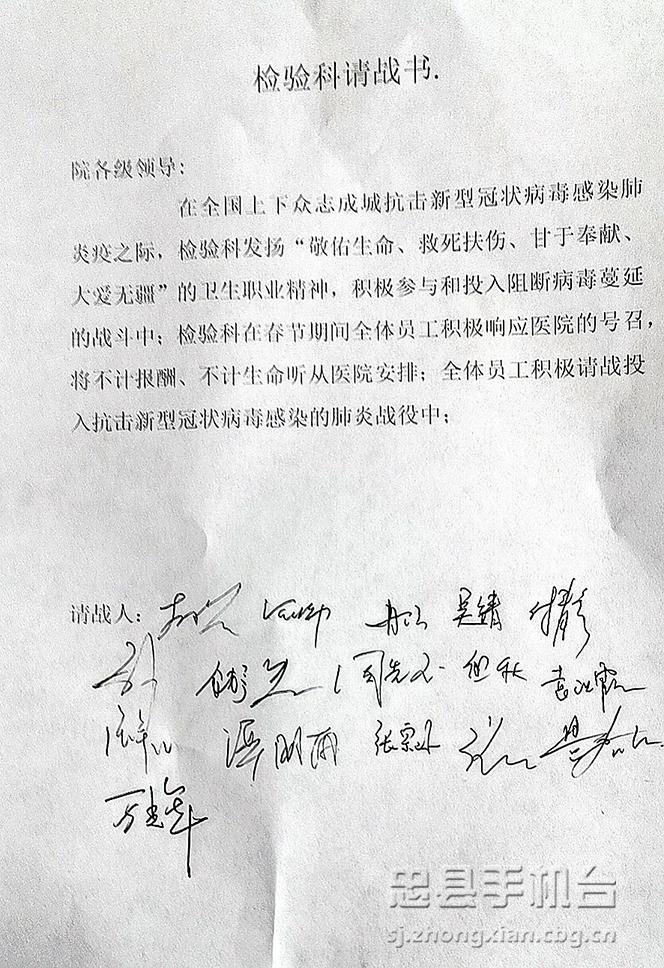 检验科请战书.
院各级领导:
在全国上下众志成城抗击新型冠状病毒感染肺
炎疫之际，检验科发扬“敬佑生命、救死扶伤、甘于奉献、
大爱无疆”的卫生职业精神，积极参与和投入阻断病毒蔓延
的战斗中；检验科在春节期间全体员工积极响应医院的号召，
将不计报酬、不计生命听从医院安排；全体员工积极请战投
入抗击新型冠状病毒感染的肺炎战役中；
请战人: 吴靖
谭明雨
忠县手机台
sj.zhongxian.cbg.cn